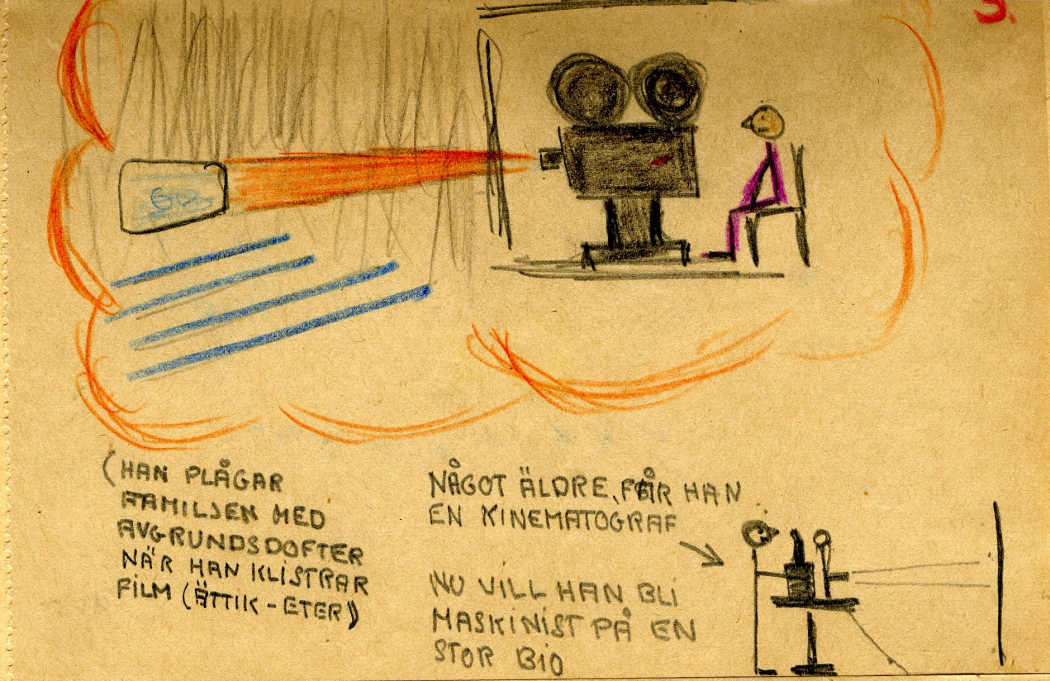 3.
(HAN PLÅGAR
FAMILJEN MED
AVGRUNDSDOFTER
NÄR HAN KLISTRAR
FILM (ÄTTIK-ETER)
NÅGOT ÄLDRE, FÅR HAN
EN KINEMATOGRAF
NU VILL HAN BLI
MASKINIST PÅ EN
STOR BIO